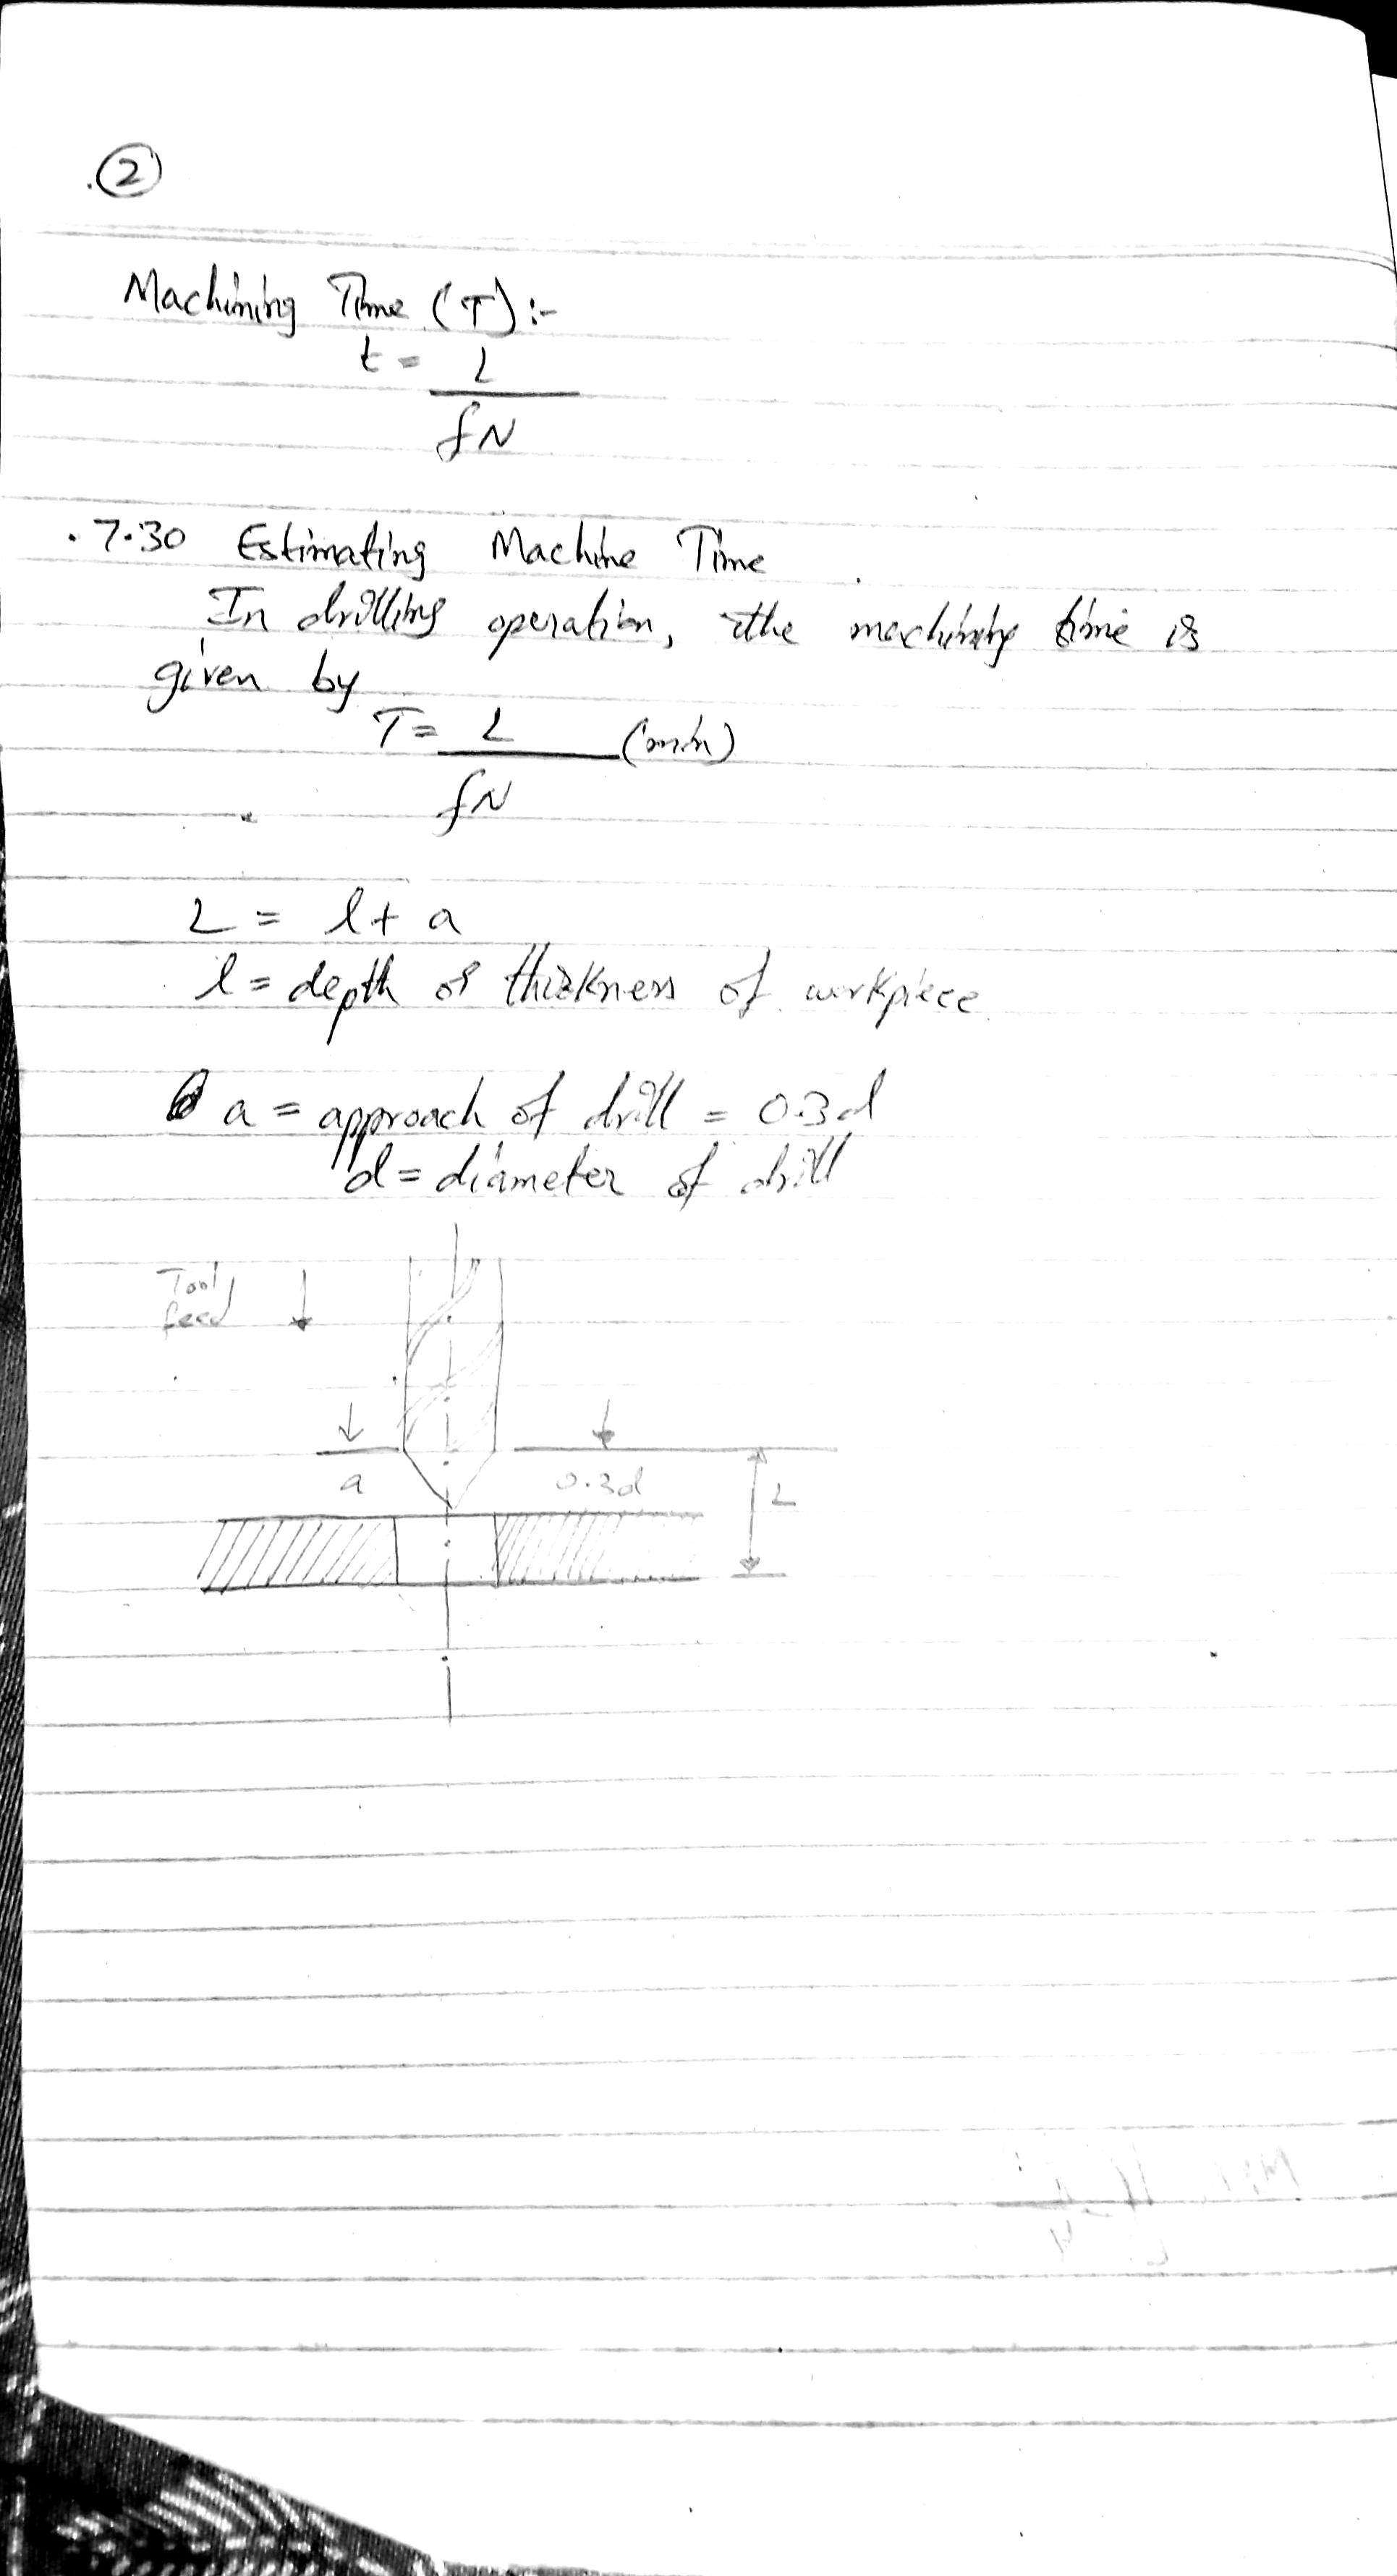 ②
Machining Time (T) :-
t = L
fN
.7.30 Estimating Machine Time
In drilling operation, the machining time is
given by
T = L (min)
fN
L = l + a
l = depth of thickness of workpiece
a = approach of drill = 0.3d
d = diameter of drill
Tool
feed
a 0.3d L